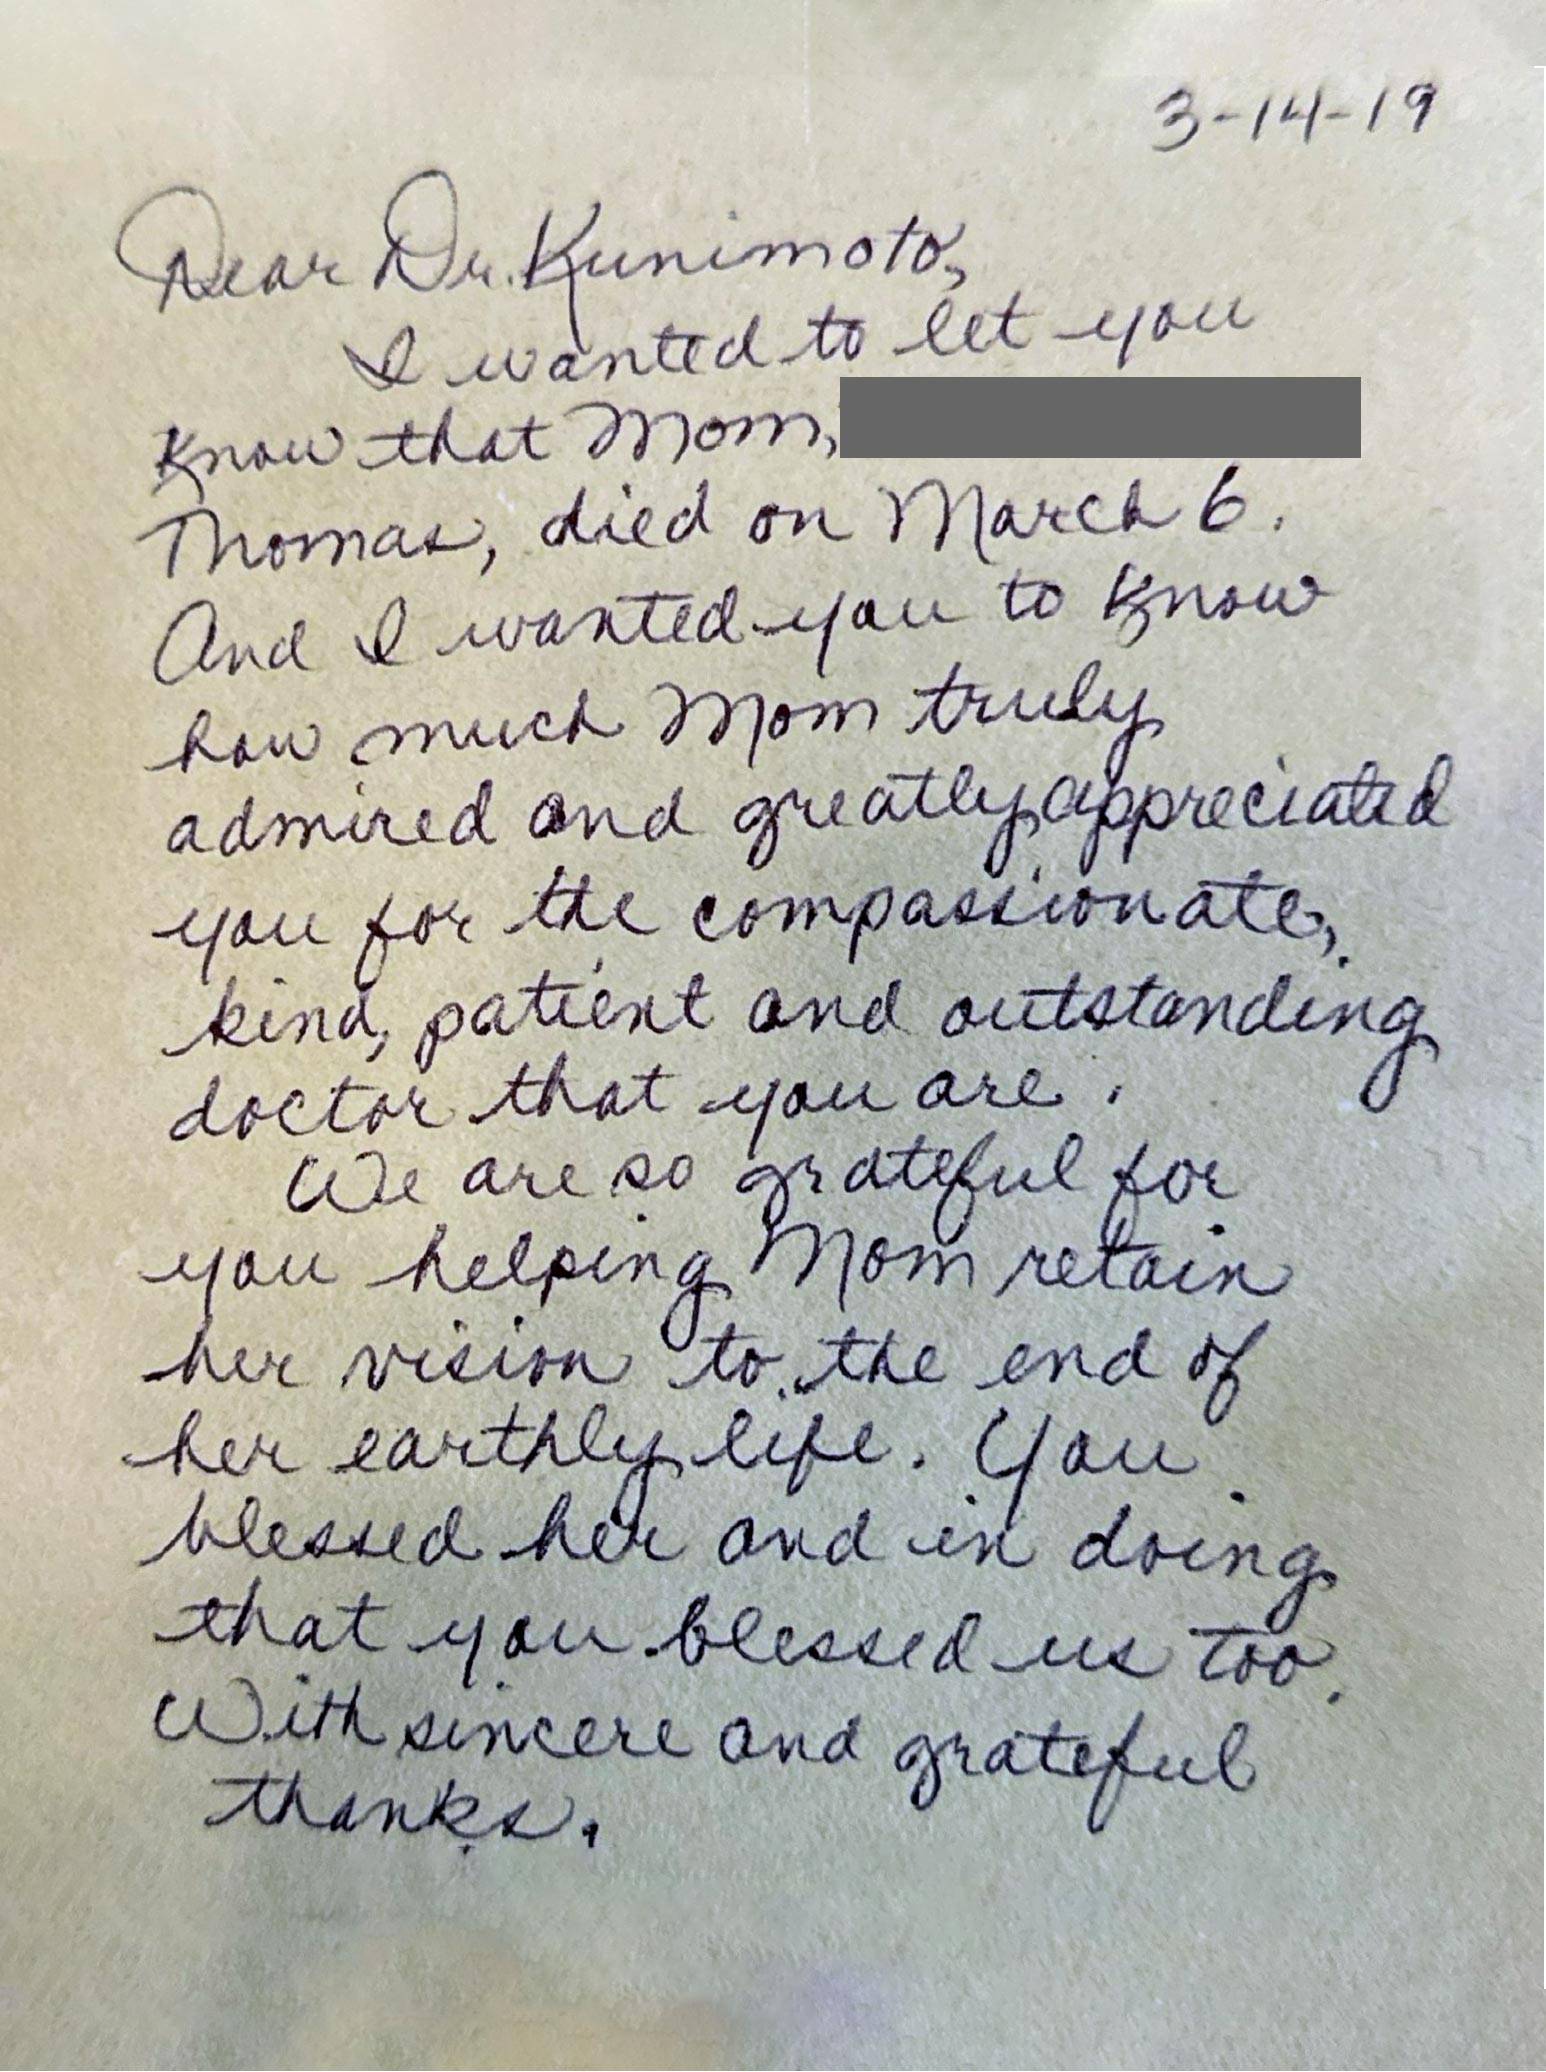 3-14-19
Dear Dr. Kunimoto,
I wanted to let you
know that Mom,
Thomas, died on March 6.
And I wanted you to know
how much Mom truly
admired and greatly appreciated
you for the compassionate,
kind, patient and outstanding
doctor that you are.
We are so grateful for
you helping Mom retain
her vision to the end of
her earthly life. You
blessed her and in doing
that you blessed us too.
With sincere and grateful
thanks.